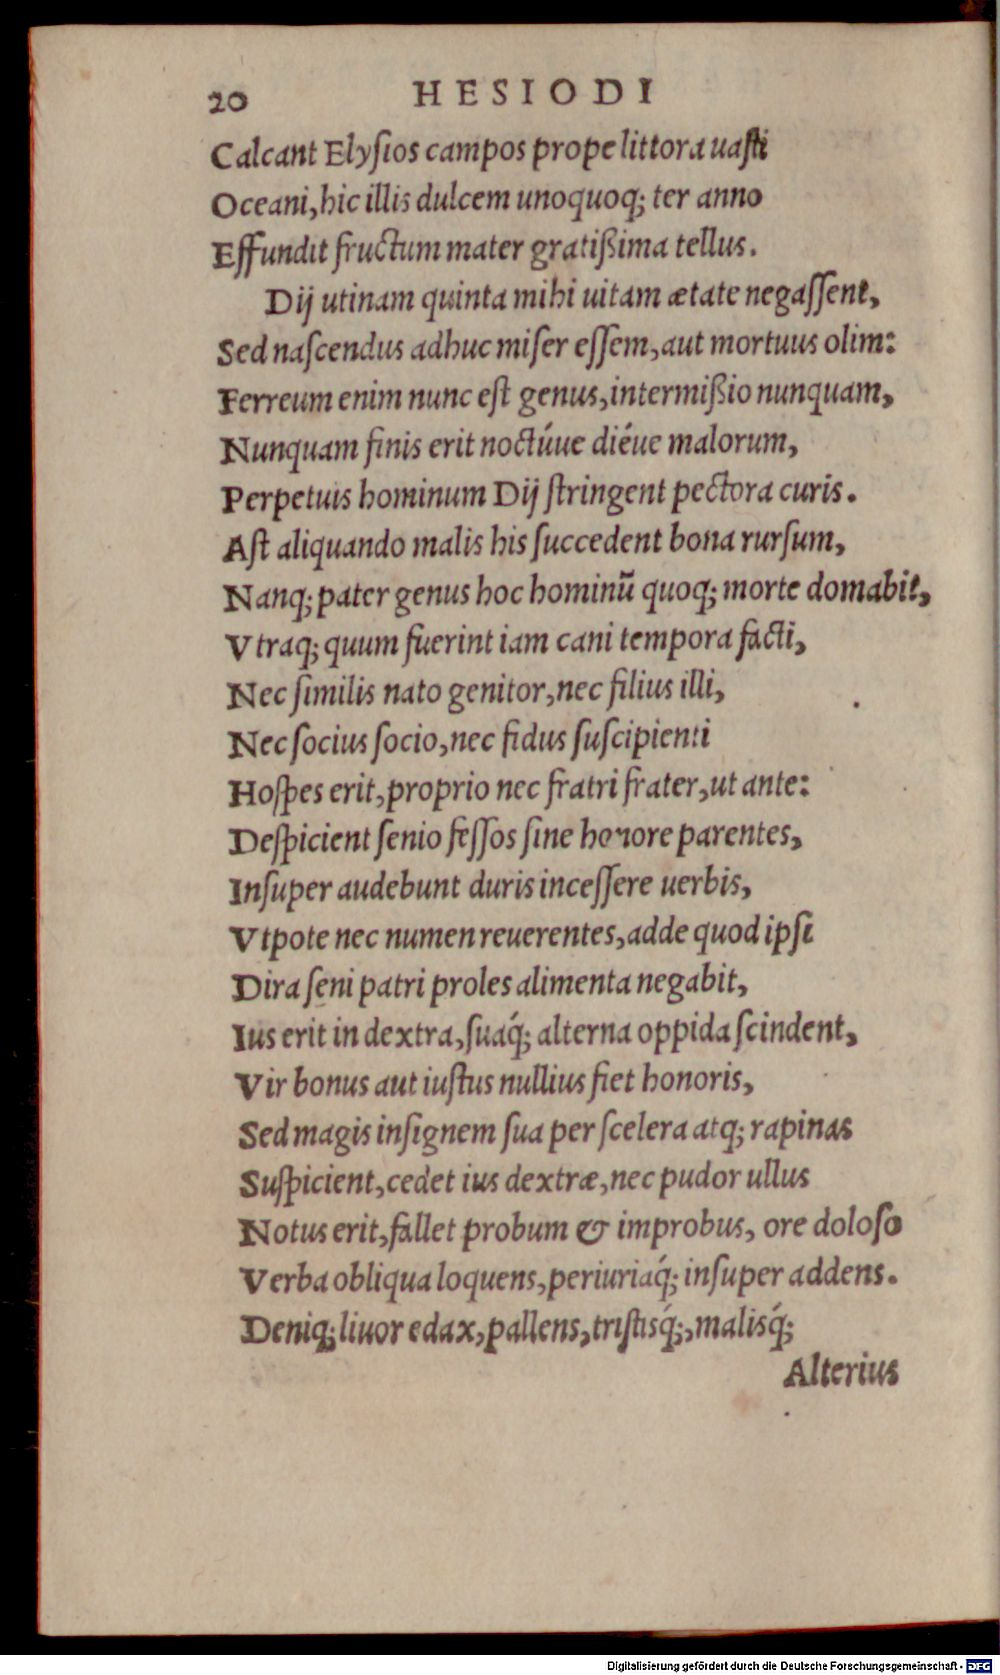 20 HESIODI
Calcant Elyſios campos prope littora uaſti
Oceani, hic illis dulcem unoquoq; ter anno
Effundit fructum mater gratißima tellus.
Dij utinam quinta mihi uitam ætate negaſſent,
Sed naſcendus adhuc miſer eſſem, aut mortuus olim:
Ferreum enim nunc eſt genus, intermißio nunquam,
Nunquam finis erit noctúue diéue malorum,
Perpetuis hominum Dij ſtringent pectora curis.
Aſt aliquando malis his ſuccedent bona rurſum,
Nanq; pater genus hoc hominū quoq; morte domabit,
Vtraq; quum fuerint iam cani tempora facti,
Nec ſimilis nato genitor, nec filius illi,
Nec ſocius ſocio, nec fidus ſuſcipienti
Hoſpes erit, proprio nec fratri frater, ut ante:
Deſpicient ſenio feſſos ſine honore parentes,
Inſuper audebunt duris inceſſere uerbis,
Vtpote nec numen reuerentes, adde quod ipſi
Dira ſeni patri proles alimenta negabit,
Ius erit in dextra, ſuaq́; alterna oppida ſcindent,
Vir bonus aut iuſtus nullius fiet honoris,
Sed magis inſignem ſua per ſcelera atq; rapinas
Suſpicient, cedet ius dextræ, nec pudor ullus
Notus erit, fallet probum & improbus, ore doloſo
Verba obliqua loquens, periuriaq́; inſuper addens.
Deniq; liuor edax, pallens, triſtisq́;, malisq́;
Alterius
Digitalisierung gefördert durch die Deutsche Forschungsgemeinschaft - DFG